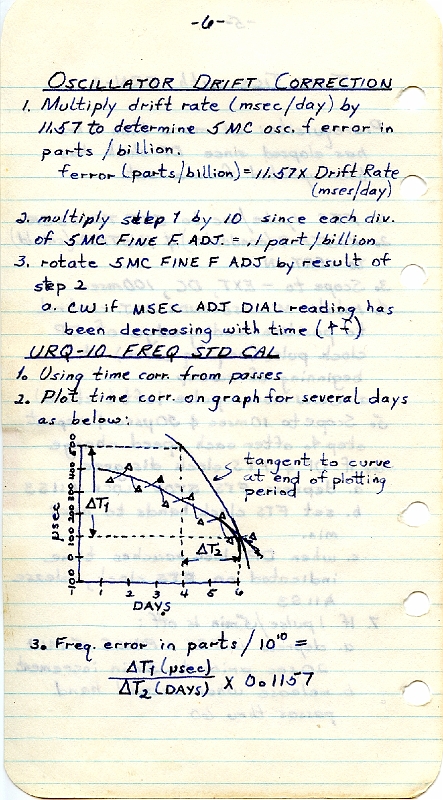 -6-
OSCILLATOR DRIFT CORRECTION
1. Multiply drift rate (msec/day) by
11.57 to determine 5MC osc. f error in
parts/billion.
ferror (parts/billion) = 11.57 X Drift Rate
(mses/day)
2. multiply step 1 by 10 since each div.
of 5MC FINE F. ADJ. = .1 part/billion
3. rotate 5MC FINE F ADJ by result of
step 2
a. CW if MSEC ADJ DIAL reading has
been decreasing with time (+f)
URQ-10 FREQ STD CAL
1. Using time corr. from passes
2. Plot time corr. on graph for several days
as below:
tangent to curve
at end of plotting
period
ΔT1
ΔT2
μsec
1 2 3 4 5 6
DAYS
3. Freq. error in parts/10¹⁰ =
ΔT1 (μsec)
ΔT2 (DAYS) X 0.1157